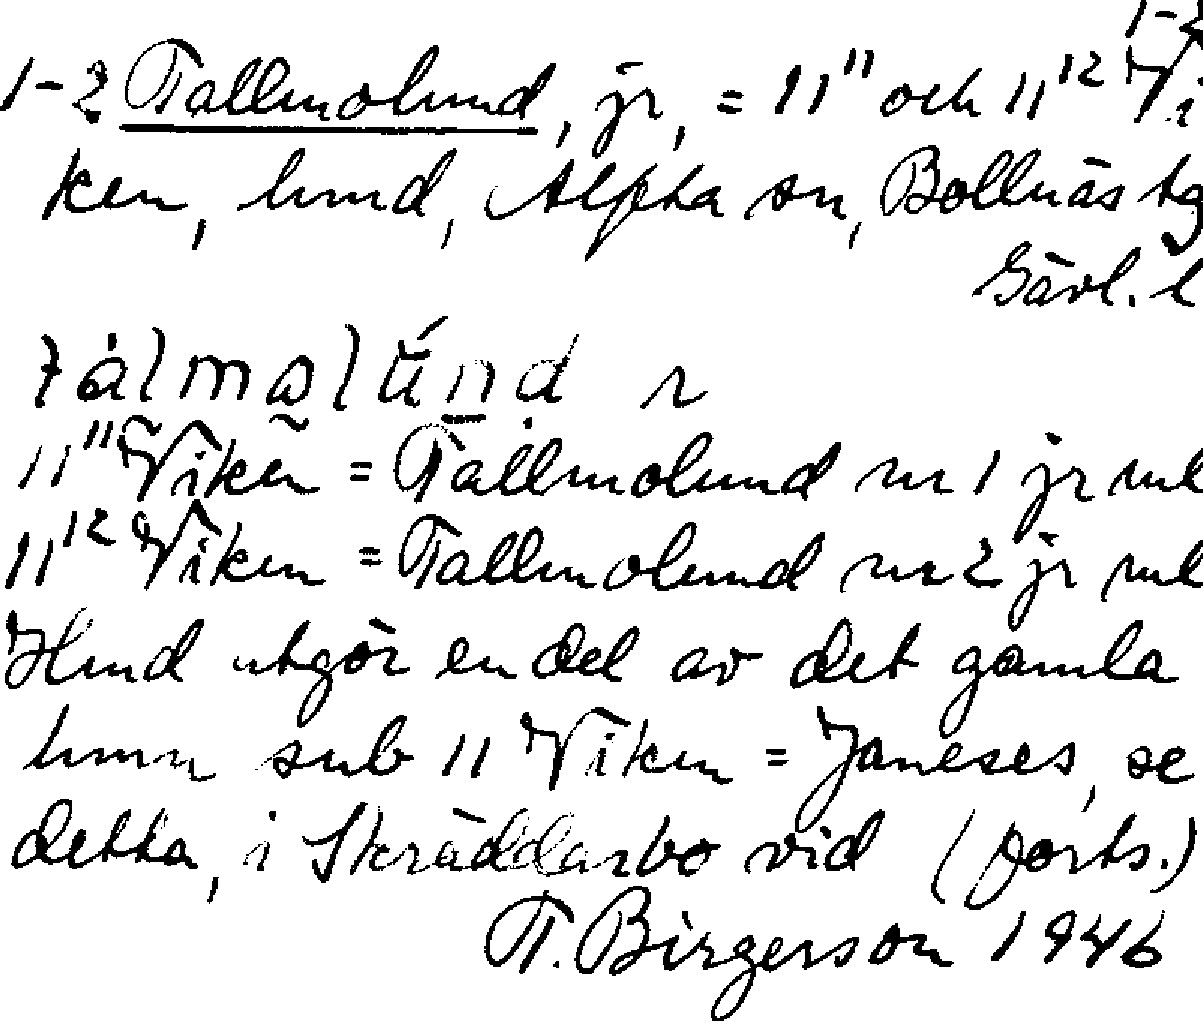 1-2
1-2 Tallmolund, jr, = 11¹¹ och 11¹² Vi
ken, hmd, Alfta sn, Bollnäs tg
Gävl. l
11¹¹ Viken = Tallmolund nr 1 jr ml
11¹² Viken = Tallmolund nr 2 jr ml
Hmd utgör en del av det gamla
hmn sub 11 Viken = Janeses, se
detta, i Skräddarbo vid (forts.)
T. Birgerson 1946